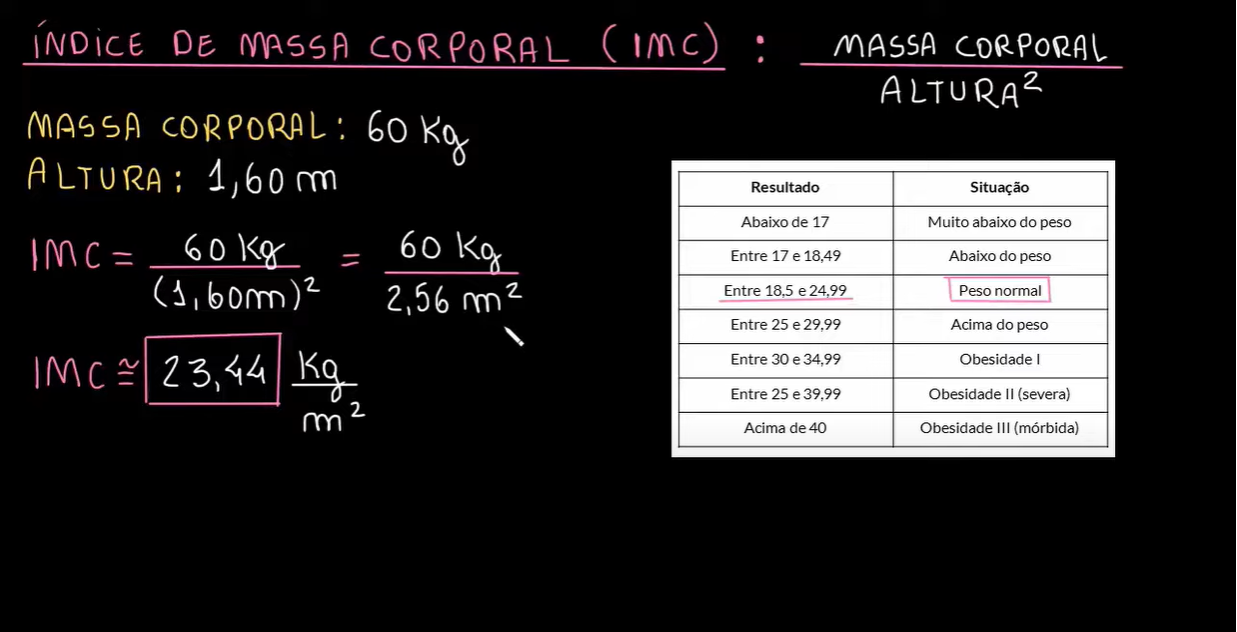 ÍNDICE DE MASSA CORPORAL (IMC) : MASSA CORPORAL
ALTURA²
MASSA CORPORAL: 60 Kg
ALTURA: 1,60 m
IMC = 60 Kg = 60 Kg
(1,60m)² 2,56 m²
IMC ≅ 23,44 Kg
m²
Resultado Situação
Abaixo de 17 Muito abaixo do peso
Entre 17 e 18,49 Abaixo do peso
Entre 18,5 e 24,99 Peso normal
Entre 25 e 29,99 Acima do peso
Entre 30 e 34,99 Obesidade I
Entre 25 e 39,99 Obesidade II (severa)
Acima de 40 Obesidade III (mórbida)